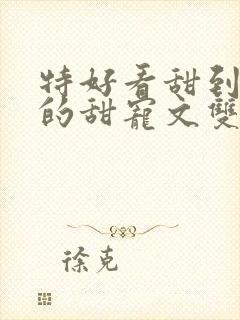 特好看甜到
的甜寵文雙
徐克